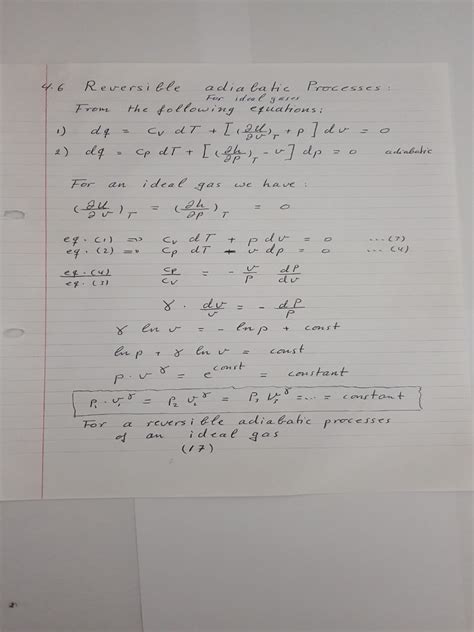 4.6 Reversible adiabatic Processes:
For ideal gases
From the following equations;
1) dq = Cv dT + [(∂u/∂v)T + p] dv = 0
2) dq = Cp dT + [(∂h/∂p)T - v] dp = 0 adiabatic
For an ideal gas we have:
(∂u/∂v)T = (∂h/∂p)T = 0
eq. (1) => Cv dT + p dv = 0 ...(3)
eq. (2) => Cp dT - v dp = 0 ...(4)
eq. (4)/eq. (3) Cp/Cv = - v/p dp/dv
γ · dv/v = - dp/p
γ ln v = - ln p + const
ln p + γ ln v = const
p · v^γ = e^const = constant
P₁ · v₁^γ = P₂ v₂^γ = P₃ v₃^γ = ... = constant
For a reversible adiabatic processes
of an ideal gas
(17)